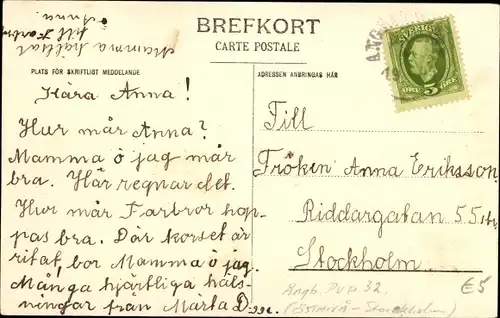 BREFKORT
CARTE POSTALE
Mamma hälsar
till Farbror
Anna
PLATS FÖR SKRIFTLIGT MEDDELANDE
Kära Anna!
Hur mår Anna?
Mamma o jag mår
bra. Här regnar det.
Hur mår Farbror hop-
pas bra. Där korset är
ritat, bor Mamma o jag.
Många hjärtliga häls-
ningar från Märta D
ADRESSEN ANBRINGAS HÄR
SVERIGE
5 ÖRE
Till
Fröken Anna Eriksson
Riddargatan 55
Stockholm
Ångb. PVP 32.
Stockholm)
€5